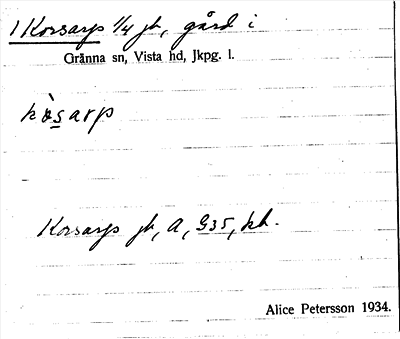 1 Korsarp 1/4 jb, gård i
Gränna sn, Vista hd, Jkpg. l.
kɷ̀sarp
Korsarp jb, A, G35, kb.
Alice Petersson 1934.